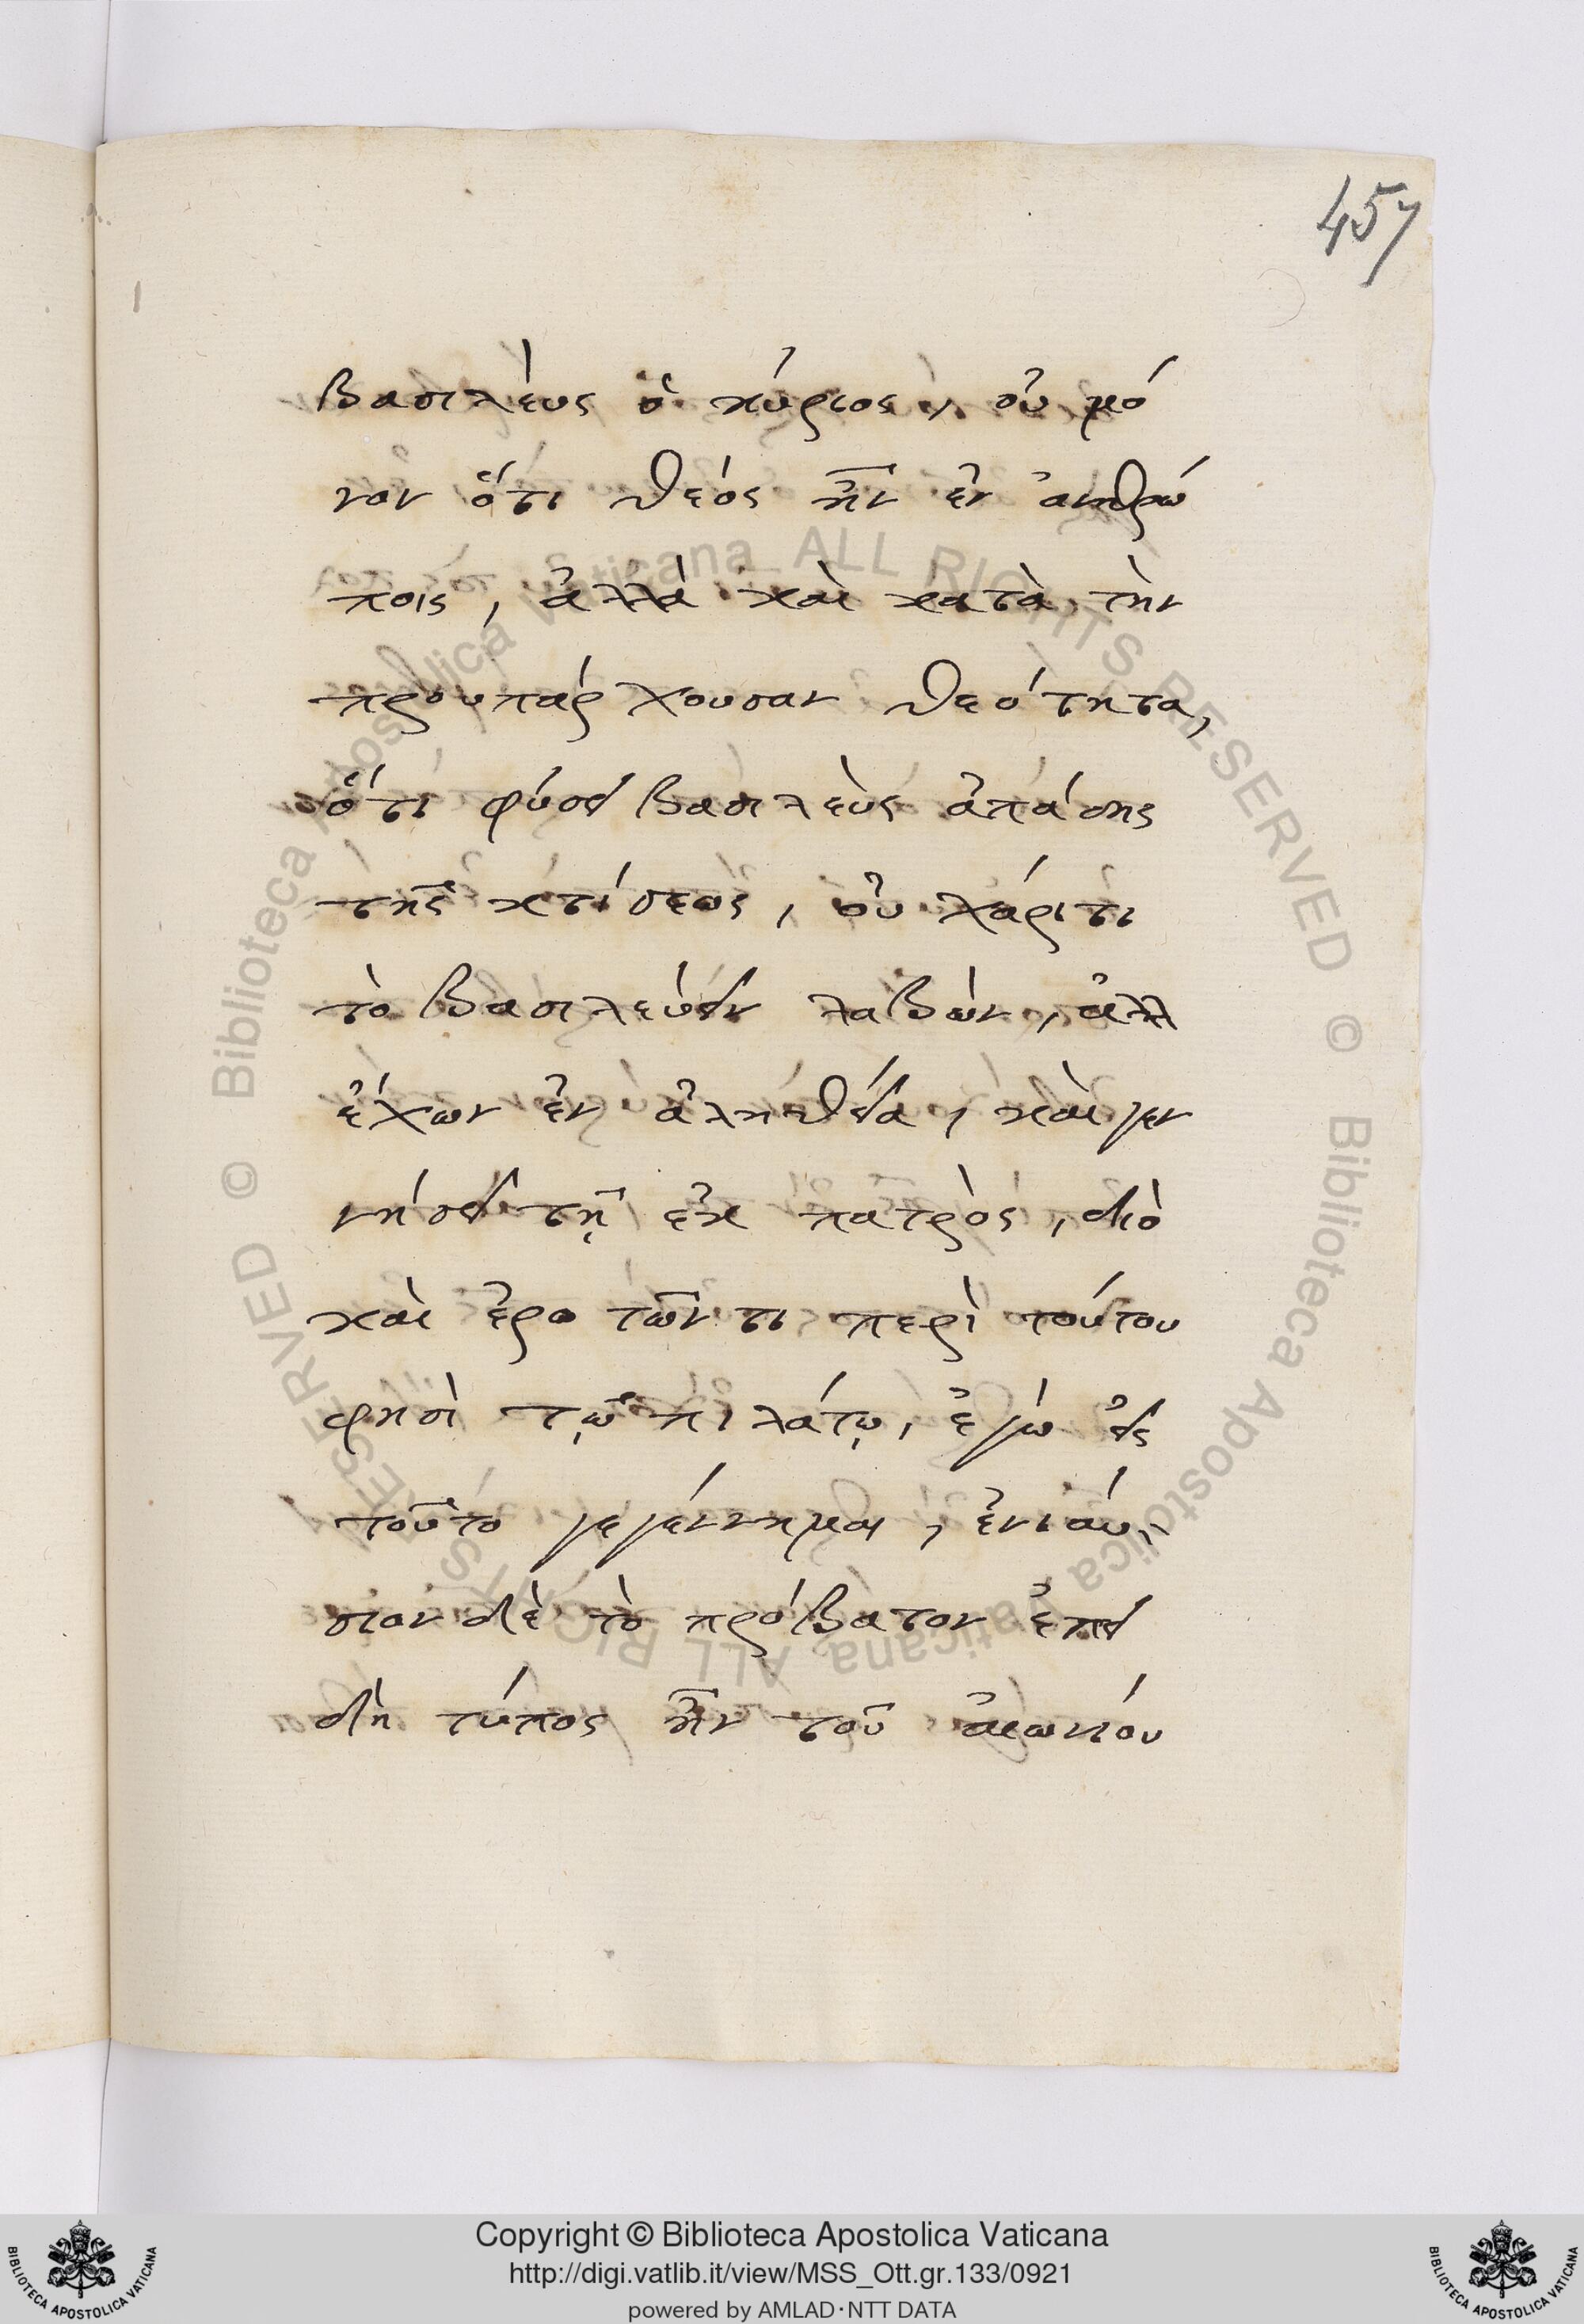 457
βασιλὲυς ὁ κύριος, οὐ μό
νον ὅτι θεός ἦν ἐν ἀνθρώ
ποις, ἀλλὰ καὶ κατὰ τὴν
προυπάρχουσαν θεότητα,
ὅτι φύσει βασιλεὺς ἁπάσης
τῆς κτίσεως, οὐ χάριτι
τὸ βασιλεύειν λαβὼν, ἀλλ
ἔχων ἐν ἀληθεία, καὶ γεν
νήσει τῇ ἐκ πατρὸς, διὸ
καὶ ἐρωτῶντι περὶ τούτου
φησὶ τῷ πιλάτῳ, ἐγὼ εἰς
τοῦτο γεγέννημαι, ἐνιαύ
σιον δὲ τὸ πρόβατον ἐπει
δὴ τύπος ἦν τοῦ ἀιωνίου
© Biblioteca Apostolica Vaticana ALL RIGHTS RESERVED
© Biblioteca Apostolica Vaticana ALL RIGHTS RESERVED
Copyright © Biblioteca Apostolica Vaticana
http://digi.vatlib.it/view/MSS_Ott.gr.133/0921
powered by AMLAD·NTT DATA
BIBLIOTECA APOSTOLICA VATICANA
BIBLIOTECA APOSTOLICA VATICANA